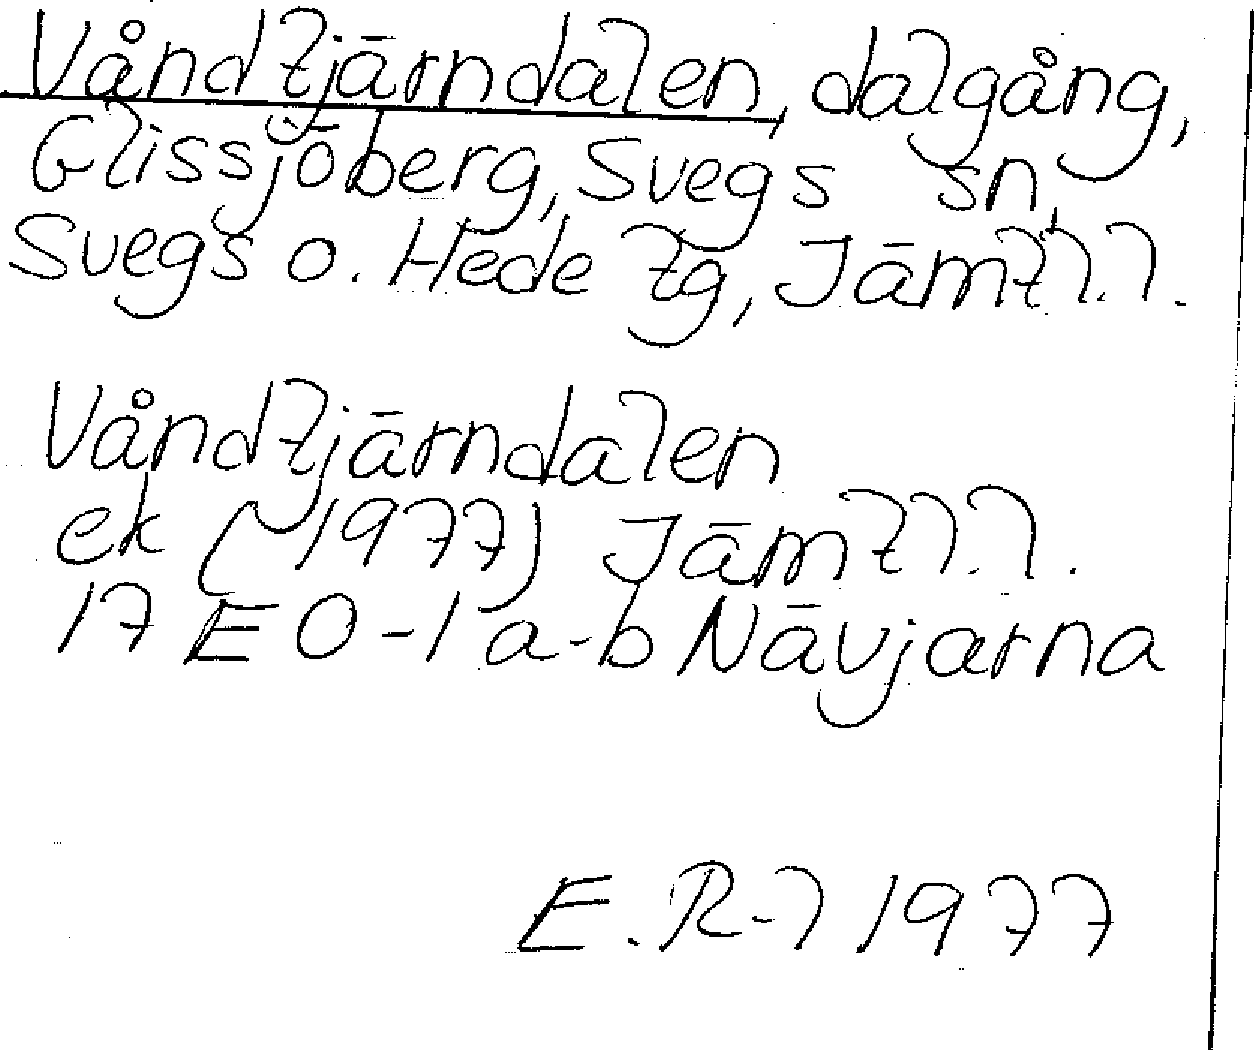 Våndtjärndalen, dalgång,
Glissjöberg, Svegs sn,
Svegs o. Hede tg, Jämtl.l.
Våndtjärndalen
ek (1977) Jämtl.l.
17 E 0-1 a-b Nävjarna
E.R-l 1977